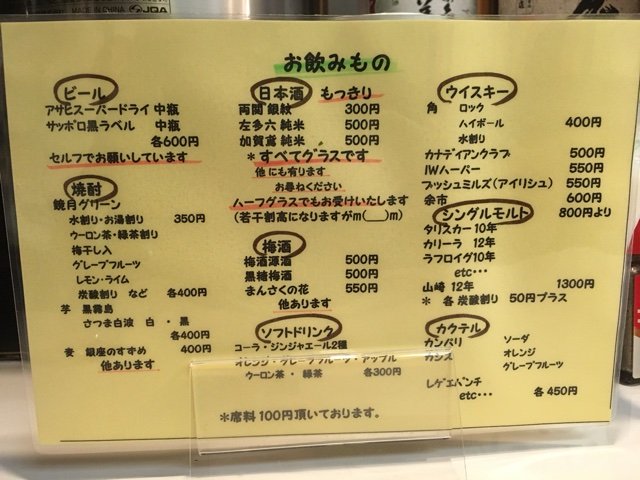 MADE IN CHINA JQA
お飲みもの
ビール
アサヒスーパードライ 中瓶
サッポロ黒ラベル 中瓶
各600円
セルフでお願いしています
焼酎
鏡月グリーン
水割り・お湯割り 350円
ウーロン茶・緑茶割り
梅干し入
グレープフルーツ
レモン・ライム
炭酸割り など 各400円
芋 黒霧島
さつま白波 白・黒
各400円
麦 銀座のすずめ 400円
他あります
日本酒 もっきり
両関 銀紋 300円
左多六 純米 500円
加賀鳶 純米 500円
*すべてグラスです
他にも有ります
お尋ねください
ハーフグラスでもお受けいたします
(若干割高になりますがm(__)m)
梅酒
梅酒源酒 500円
黒糖梅酒 500円
まんさくの花 550円
他あります
ソフトドリンク
コーラ・ジンジャエール2種
オレンジ・グレープフルーツ・アップル
ウーロン茶・緑茶 各300円
ウイスキー
角 ロック
ハイボール 400円
水割り
カナディアンクラブ 500円
IWハーパー 550円
ブッシュミルズ(アイリシュ) 550円
余市 600円
シングルモルト 800円より
タリスカー10年
カリーラ 12年
ラフロイグ10年
etc…
山崎 12年 1300円
* 各炭酸割り 50円プラス
カクテル
カンパリ ソーダ
カシス オレンジ
グレープフルーツ
レゲエパンチ
etc… 各450円
*席料100円頂いております。